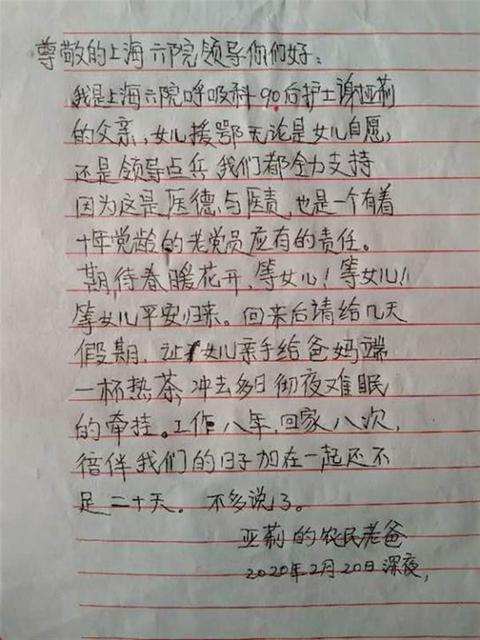 尊敬的上海六院领导你们好:
我是上海六院呼吸科90后护士谢亚莉
的父亲,女儿援鄂无论是女儿自愿,
还是领导点兵我们都全力支持
因为这是医德与医责,也是一个有着
十年党龄的老党员应有的责任。
期待春暖花开,等女儿!等女儿!
等女儿平安归来。回来后请给几天
假期,让女儿亲手给爸妈端
一杯热茶,冲去多日彻夜难眠
的牵挂。工作八年,回家八次,
陪伴我们的日子加在一起还不
足二十天。不多说了。
亚莉的农民老爸
2020年2月20日深夜,